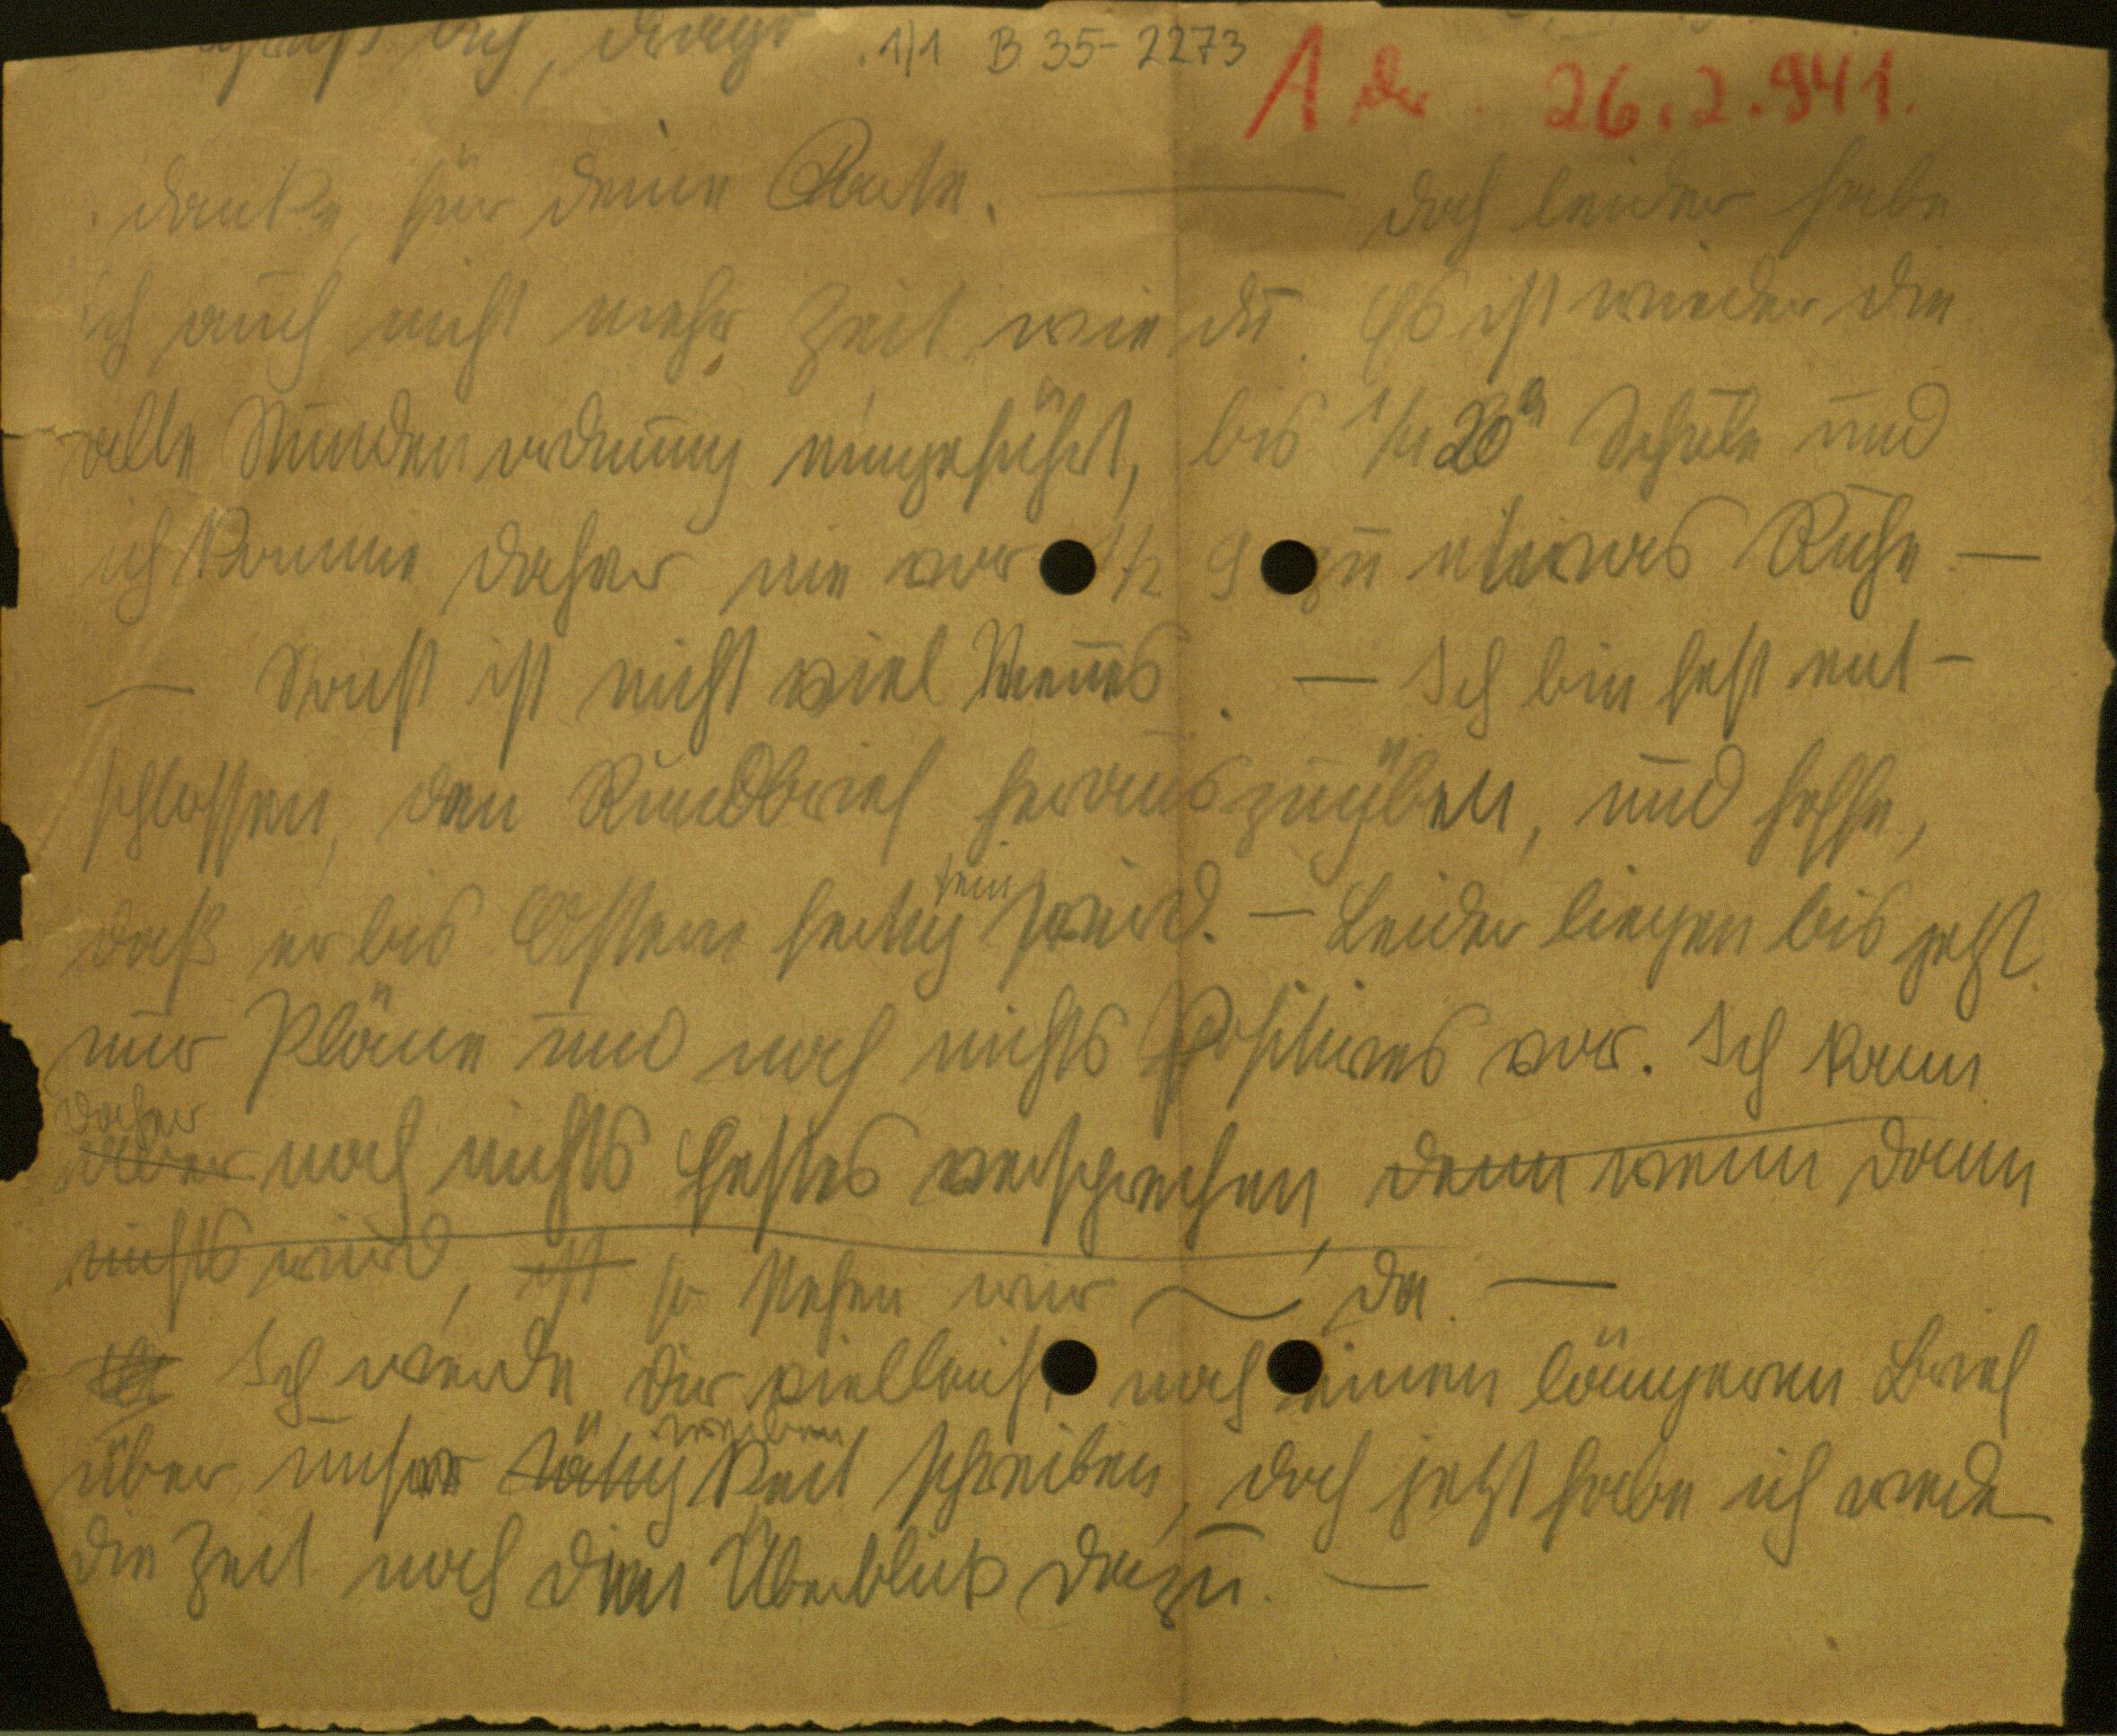 1/1 B 35-2273
A 26.2.941.
danke für deine Karte. — doch leider habe
ich auch nicht mehr Zeit wie du. Es ist wieder die
alte Stundenordnung eingeführt, bis 1/4 20h Schule und
ich komme daher nie vor 1/2 9 zu etwas Ruhe. —
— Sonst ist nicht viel Neues. — Ich bin fest ent-
schlossen, den Rundbrief herauszugeben, und hoffe,
daß er bis Ostern fertig sein wird. — Leider liegen bis jetzt
nur Pläne und noch nichts Positives vor. Ich kann
daher
aber noch nichts Festes versprechen, denn wenn dann
nichts wird, ist so stehen wir da. —
Ich werde dir vielleicht noch einen längeren Brief
über unser Tätigkeit schreiben, doch jetzt habe ich weder
die Zeit noch den Überblick dazu. —